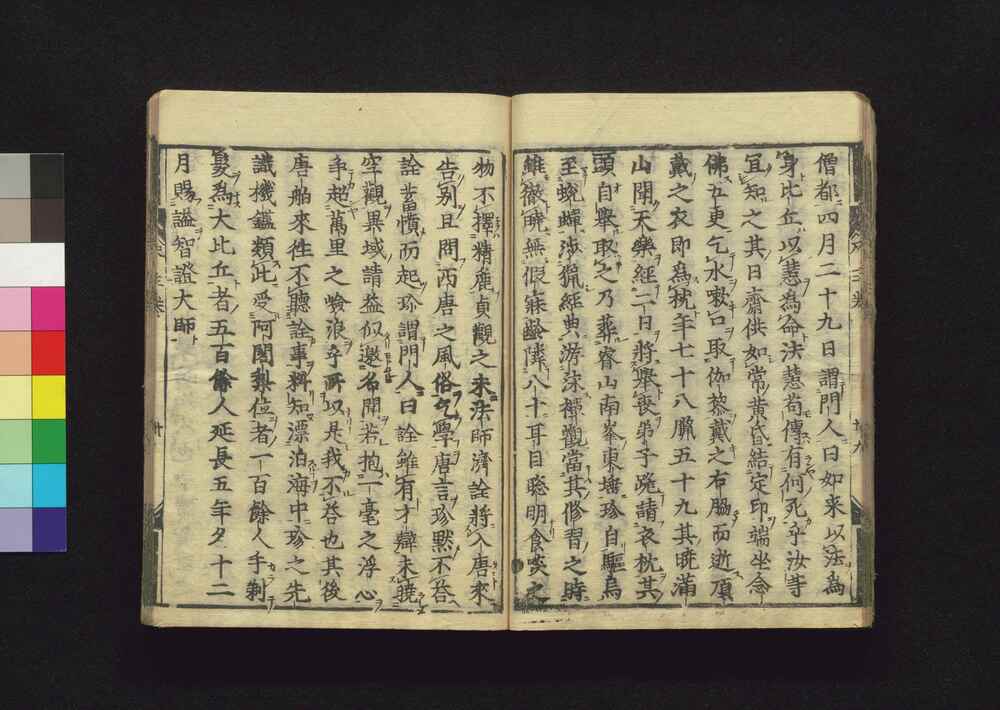 僧都四月二十九日謂門人曰如來以法為
身比丘以慧為命決慧苟傳有何死乎汝等
宜知之其日齋供如常黃昏結定印端坐念
佛五更乞水嗽口取伽梨戴之右脇而逝頂
戴之衣即為枕年七十八臘五十九其曉滿
山聞天樂經二日將舉喪弟子跪請衣枕其
頭自舉取之乃葬睿山南峯東壖珍自驅烏
至蛻蟬涉獵經典游泳禪觀當其修習之時
雖徹曉無假寐齡隣八十耳目聡明食啖之
物不擇精麁貞觀之末法師濟詮將入唐來
告別且問西唐之風俗乞學唐言珍默不荅
詮蓄憤而起珍謂門人曰詮雖有才辯未曉
空觀異域請益似邀名聞若抱一毫之浮心
手超萬里之嶮浪乎所以是我不荅也其後
唐舶來徃不聽詮事料知漂泊海中珍之先
識機鑑類此受阿闍梨位者一百餘人手剃
髮為大比丘者五百餘人延長五年夕十二
月賜謚智證大師
廿九